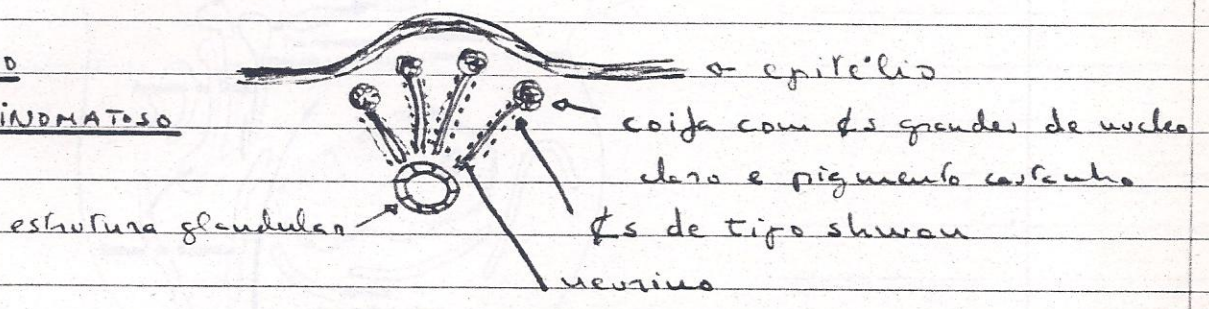 O
INOMATOSO
epitélio
coifa com ₵s grandes de nucleo
claro e pigmento castanho
estrutura glandular
₵s de tipo shwan
neurino